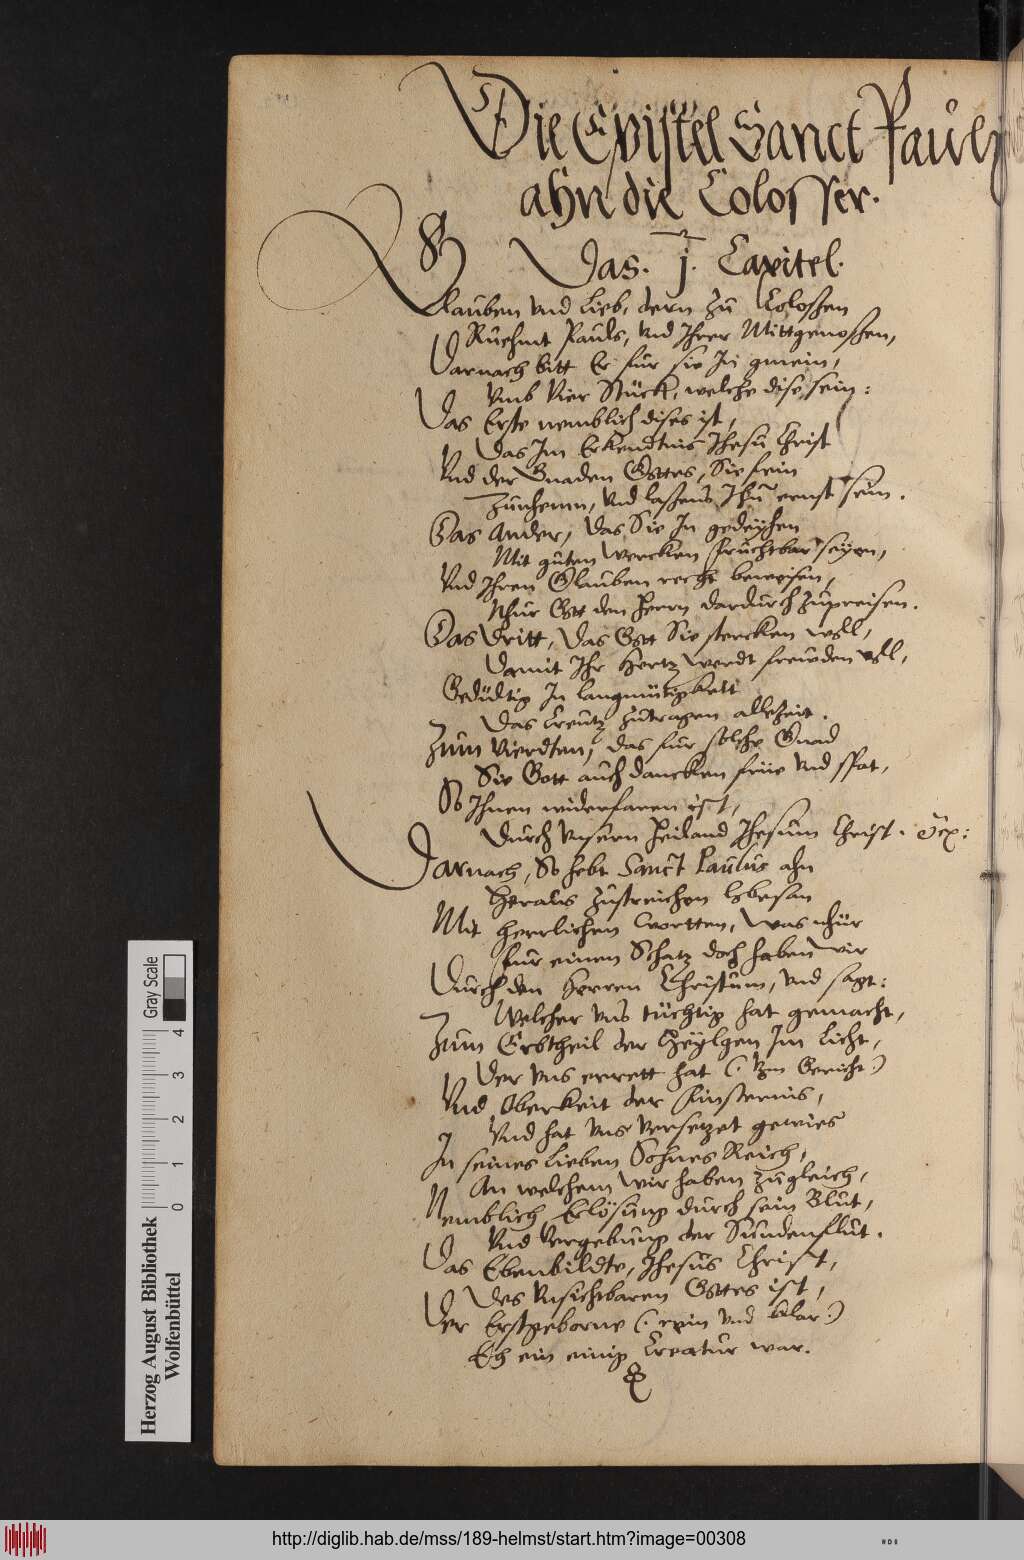 Die Epistel Sanct Pauli
ahn die Colosser.
Das. j. Capitel.
Glauben vnd Lieb, dern zu Colossen
Ruehmt Pauls, vnd Ihrer Mittgenossen,
Darnach bitt Er fur sie In gmein,
Vmb Vier Stuck, welche dise sein:
Das Erste nemblich dises ist,
Das Im Erkendtnis Ihesu Christ
Vnd der Gnaden Gottes, Sie fein
Zunhemen, vnd lassens Ihn ernst sein.
Das Ander, das Sie In gedeyhen
Mit guten Wercken fruchtbar seyen,
Vnd Ihren Glauben recht beweisen,
Nhur Gott den Herrn dardurch zupreisen.
Das Dritt, das Gott Sie stercken woll,
Damit Ihr Hertz werdt frewden voll,
Gedultig In langmutigkeit
Das Creutz zutragen allezeit.
Zum Vierdten, das fur solche Gnad
Sie Gott auch dancken frue vnd spat,
So Ihnen widerfaren ist,
Durch vnsern Heiland Ihesum Christ.
Darnach, So hebt Sanct Paulus ahn
Heraus zustreichen lobesan
Mit herrlichen Wortten, was nhur
fur einen Schatz doch haben wir
Durch den Herren Christum, vnd sagt:
Welcher vns tuchtig hat gemacht,
Zum Erbtheil der Heylgen Im Licht,
Der vns errett hat (: vom Gericht:)
Vnd Oberkeit der finsternis,
Vnd hat vns versetzet gewies
In seines Lieben Sohnes Reich,
An welchem wir haben zugleich,
Nemblich Erlösung durch sein Blut,
Vnd Vergebung der Sundenflut.
Das Ebenbildte, Ihesus Christ,
Des vnsichtbaren Gottes ist,
Der Erstgeborne (: rein vnd klar:)
Eh ein einig Creatur war.
Herzog August Bibliothek
Wolfenbüttel
0 1 2 3 4
Gray Scale
http://diglib.hab.de/mss/189-helmst/start.htm?image=00308